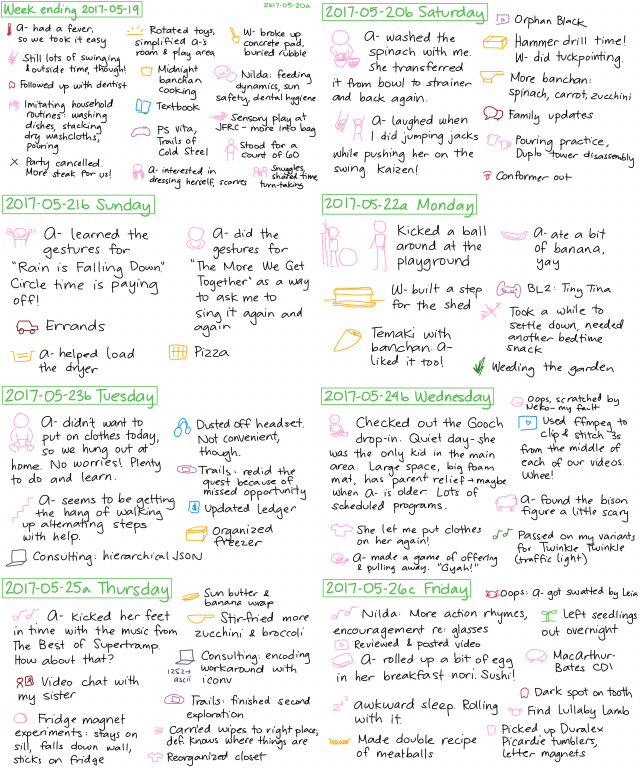 Week ending 2017-05-19
2017-05-20a
A- had a fever,
so we took it easy
Still lots of swinging
& outside time, though!
Followed up with dentist
Imitating household
routines: washing
dishes, stacking
dry washcloths,
pouring
Party cancelled.
More steak for us!
Rotated toys,
simplified A-'s
room & play area
Midnight
banchan
cooking
Textbook
PS Vita,
Trails of
Cold Steel
A- interested in
dressing herself, scarves
W- broke up
concrete pad,
buried rubble
Nilda: feeding
dynamics, sun
safety, dental hygiene
Sensory play at
JFRC - more into bag
Stood for a
count of 60
Snuggles,
shared time,
turn-taking
2017-05-20b Saturday
A- washed the
spinach with me.
She transferred
it from bowl to strainer
and back again.
A- laughed when
I did jumping jacks
while pushing her on the
swing. Kaizen!
Orphan Black
Hammer drill time!
W- did tuckpointing.
More banchan:
spinach, carrot, zucchini
Family updates
Pouring practice,
Duplo tower disassembly
Conformer out
2017-05-21b Sunday
A- learned the
gestures for
"Rain is Falling Down"
Circle time is paying
off!
Errands
A- helped load
the dryer
A- did the
gestures for
"The More We Get
Together" as a way
to ask me to
sing it again and
again
Pizza
2017-05-22a Monday
Kicked a ball
around at the
playground
W- built a step
for the shed
Temaki with
banchan. A-
liked it too!
A- ate a bit
of banana,
yay
BL2: Tiny Tina
Took a while to
settle down, needed
another bedtime
snack
Weeding the garden
2017-05-23b Tuesday
A- didn't want to
put on clothes today,
so we hung out at
home. No worries! Plenty
to do and learn.
A- seems to be getting
the hang of walking
up alternating steps
with help.
Consulting: hierarchical JSON
Dusted off headset.
Not convenient,
though.
Trails: redid the
quest because of
missed opportunity
Updated ledger
Organized
freezer
2017-05-24b Wednesday
Checked out the Gooch
drop-in. Quiet day - she
was the only kid in the main
area. Large space, big foam
mat, has parent relief → maybe
when A- is older. Lots of
scheduled programs.
She let me put clothes
on her again!
A- made a game of offering
& pulling away. "Gyah!"
Oops, scratched by
Neko - my fault
Used ffmpeg to
clip & stitch 3s
from the middle of
each of our videos.
Whee!
A- found the bison
figure a little scary
Passed on my variants
for Twinkle Twinkle
(traffic light)
2017-05-25a Thursday
A- kicked her feet
in time with the music from
The Best of Supertramp.
How about that?
Video chat with
my sister
Fridge magnet
experiments: stays on
sill, falls down wall,
sticks on fridge
Sun butter &
banana wrap
Stir-fried more
zucchini & broccoli
Consulting: encoding
workaround with
iconv
1252→
ascii
Trails: finished second
exploration
Carried wipes to right place;
def. knows where things are
Reorganized closet
2017-05-26c Friday
Nilda: More action rhymes,
encouragement re: glasses
Reviewed & posted video
A- rolled up a bit of egg
in her breakfast nori. Sushi!
Awkward sleep. Rolling
with it.
Made double recipe
of meatballs
Oops: A- got swatted by Leia
Left seedlings
out overnight
MacArthur-
Bates CDI
Dark spot on tooth
Find Lullaby Lamb
Picked up Duralex
Picardie tumblers,
letter magnets